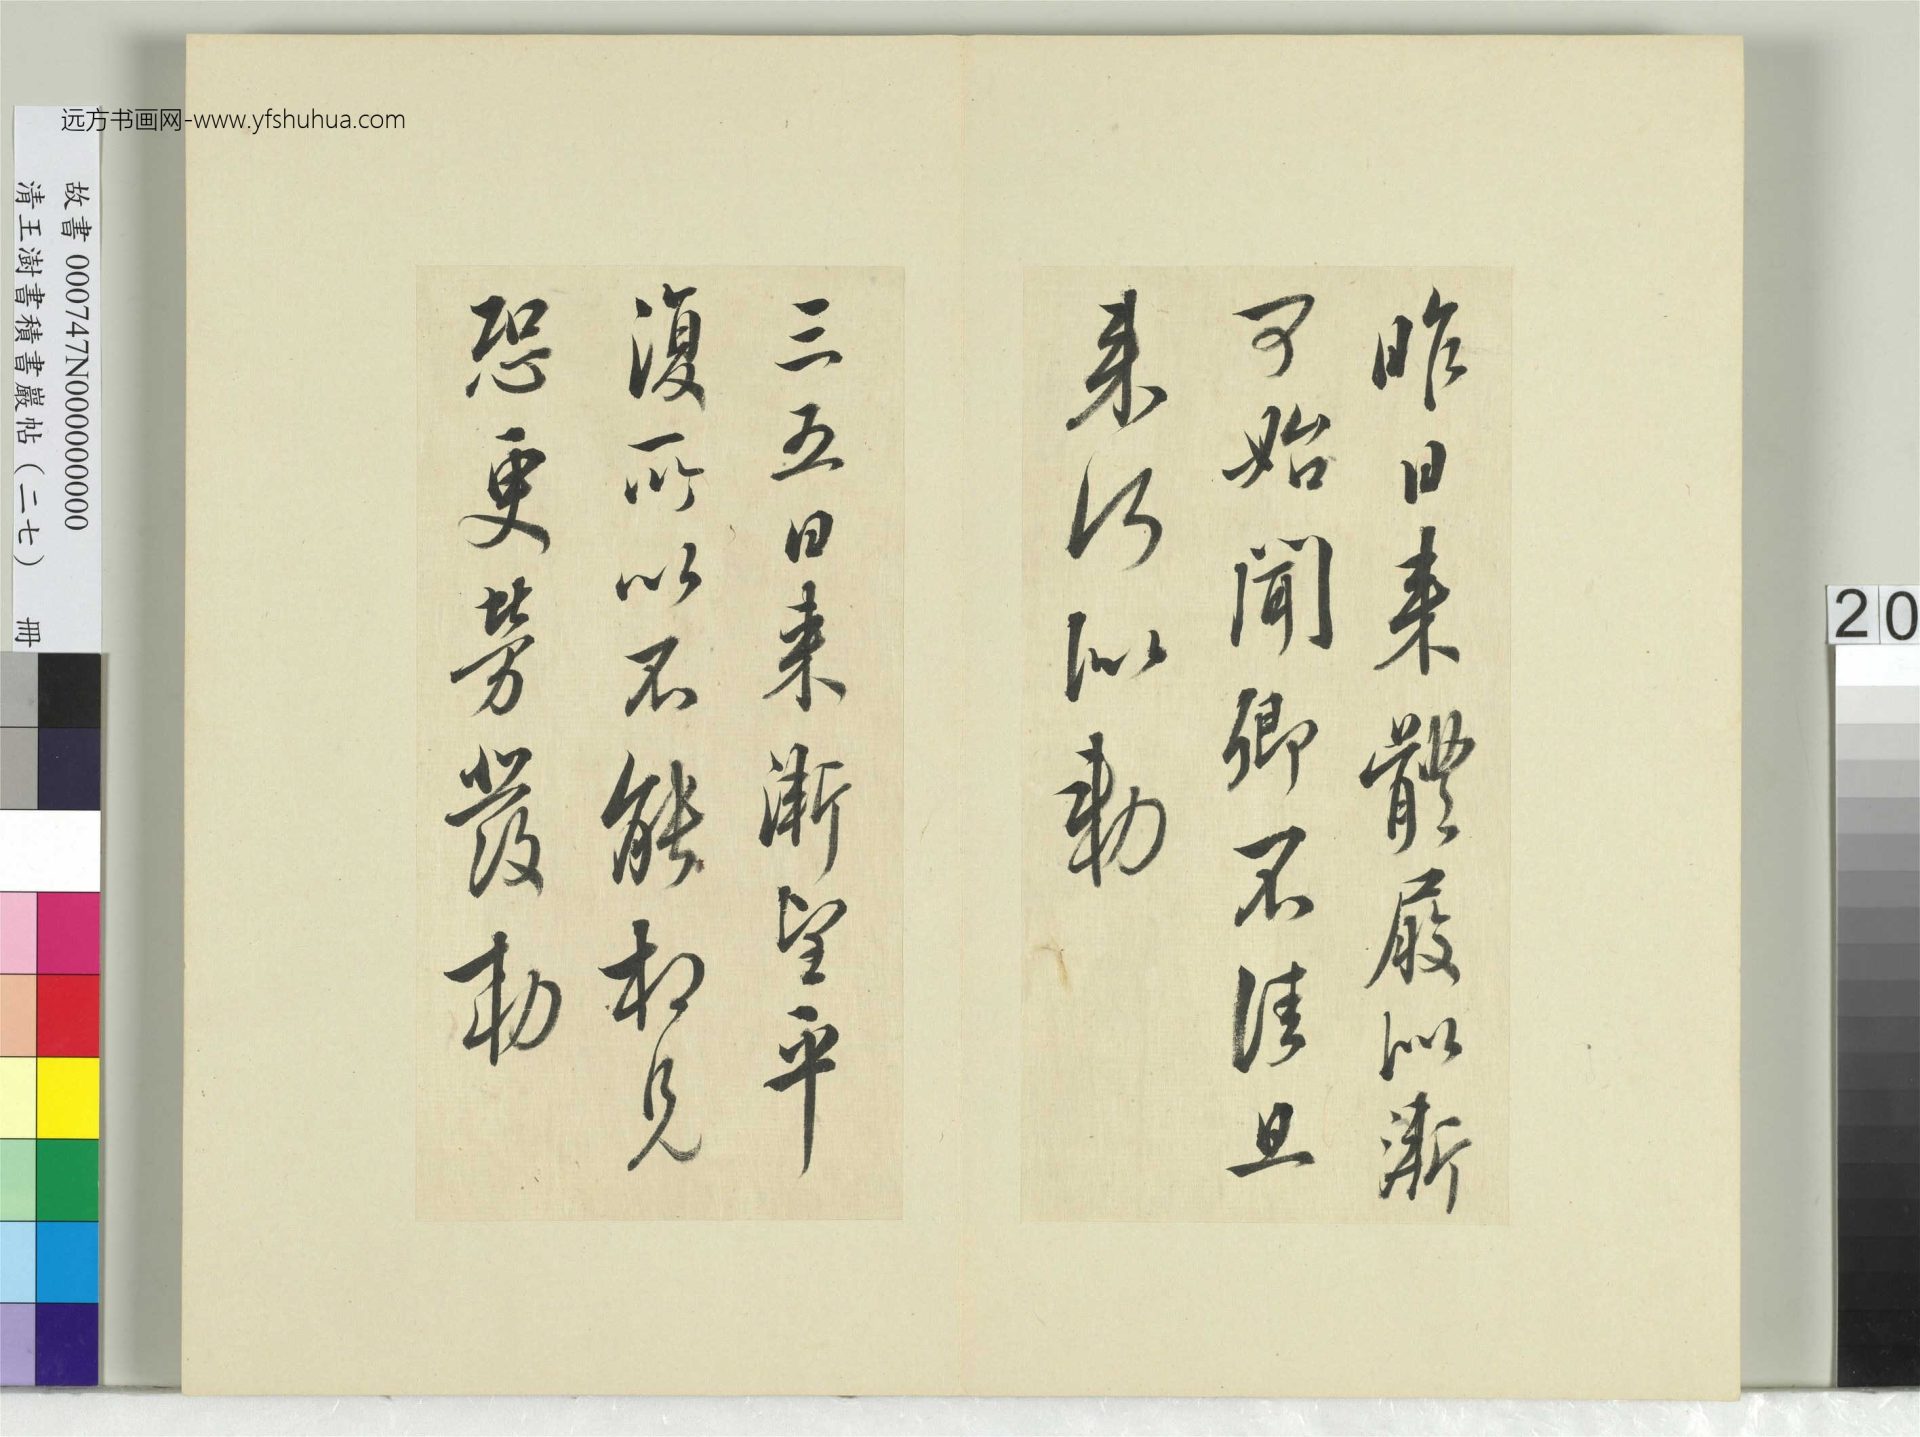 昨日来體履似漸
可始聞卿不佳旦
来何似勅
三五日来漸望平
復所以不能相見
恐更勞發勅
远方书画网-www.yfshuhua.com
故書 000747N000000000
清王澍書積書巖帖（二七） 冊
20